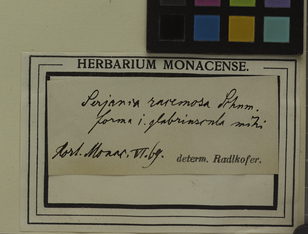 HERBARIUM MONACENSE.
Serjania racemosa Schum.
forma 1. glabriuscula mihi
Hort. Monac. VI. 69.
determ. Radlkofer.